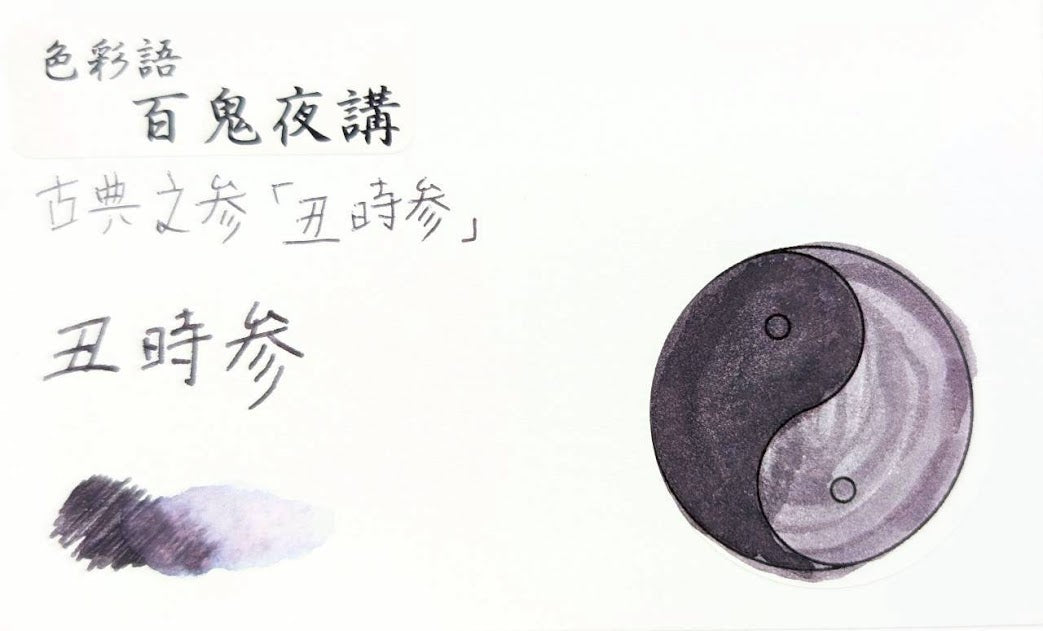 色彩語
百鬼夜講
古典之参「丑時参」
丑時参